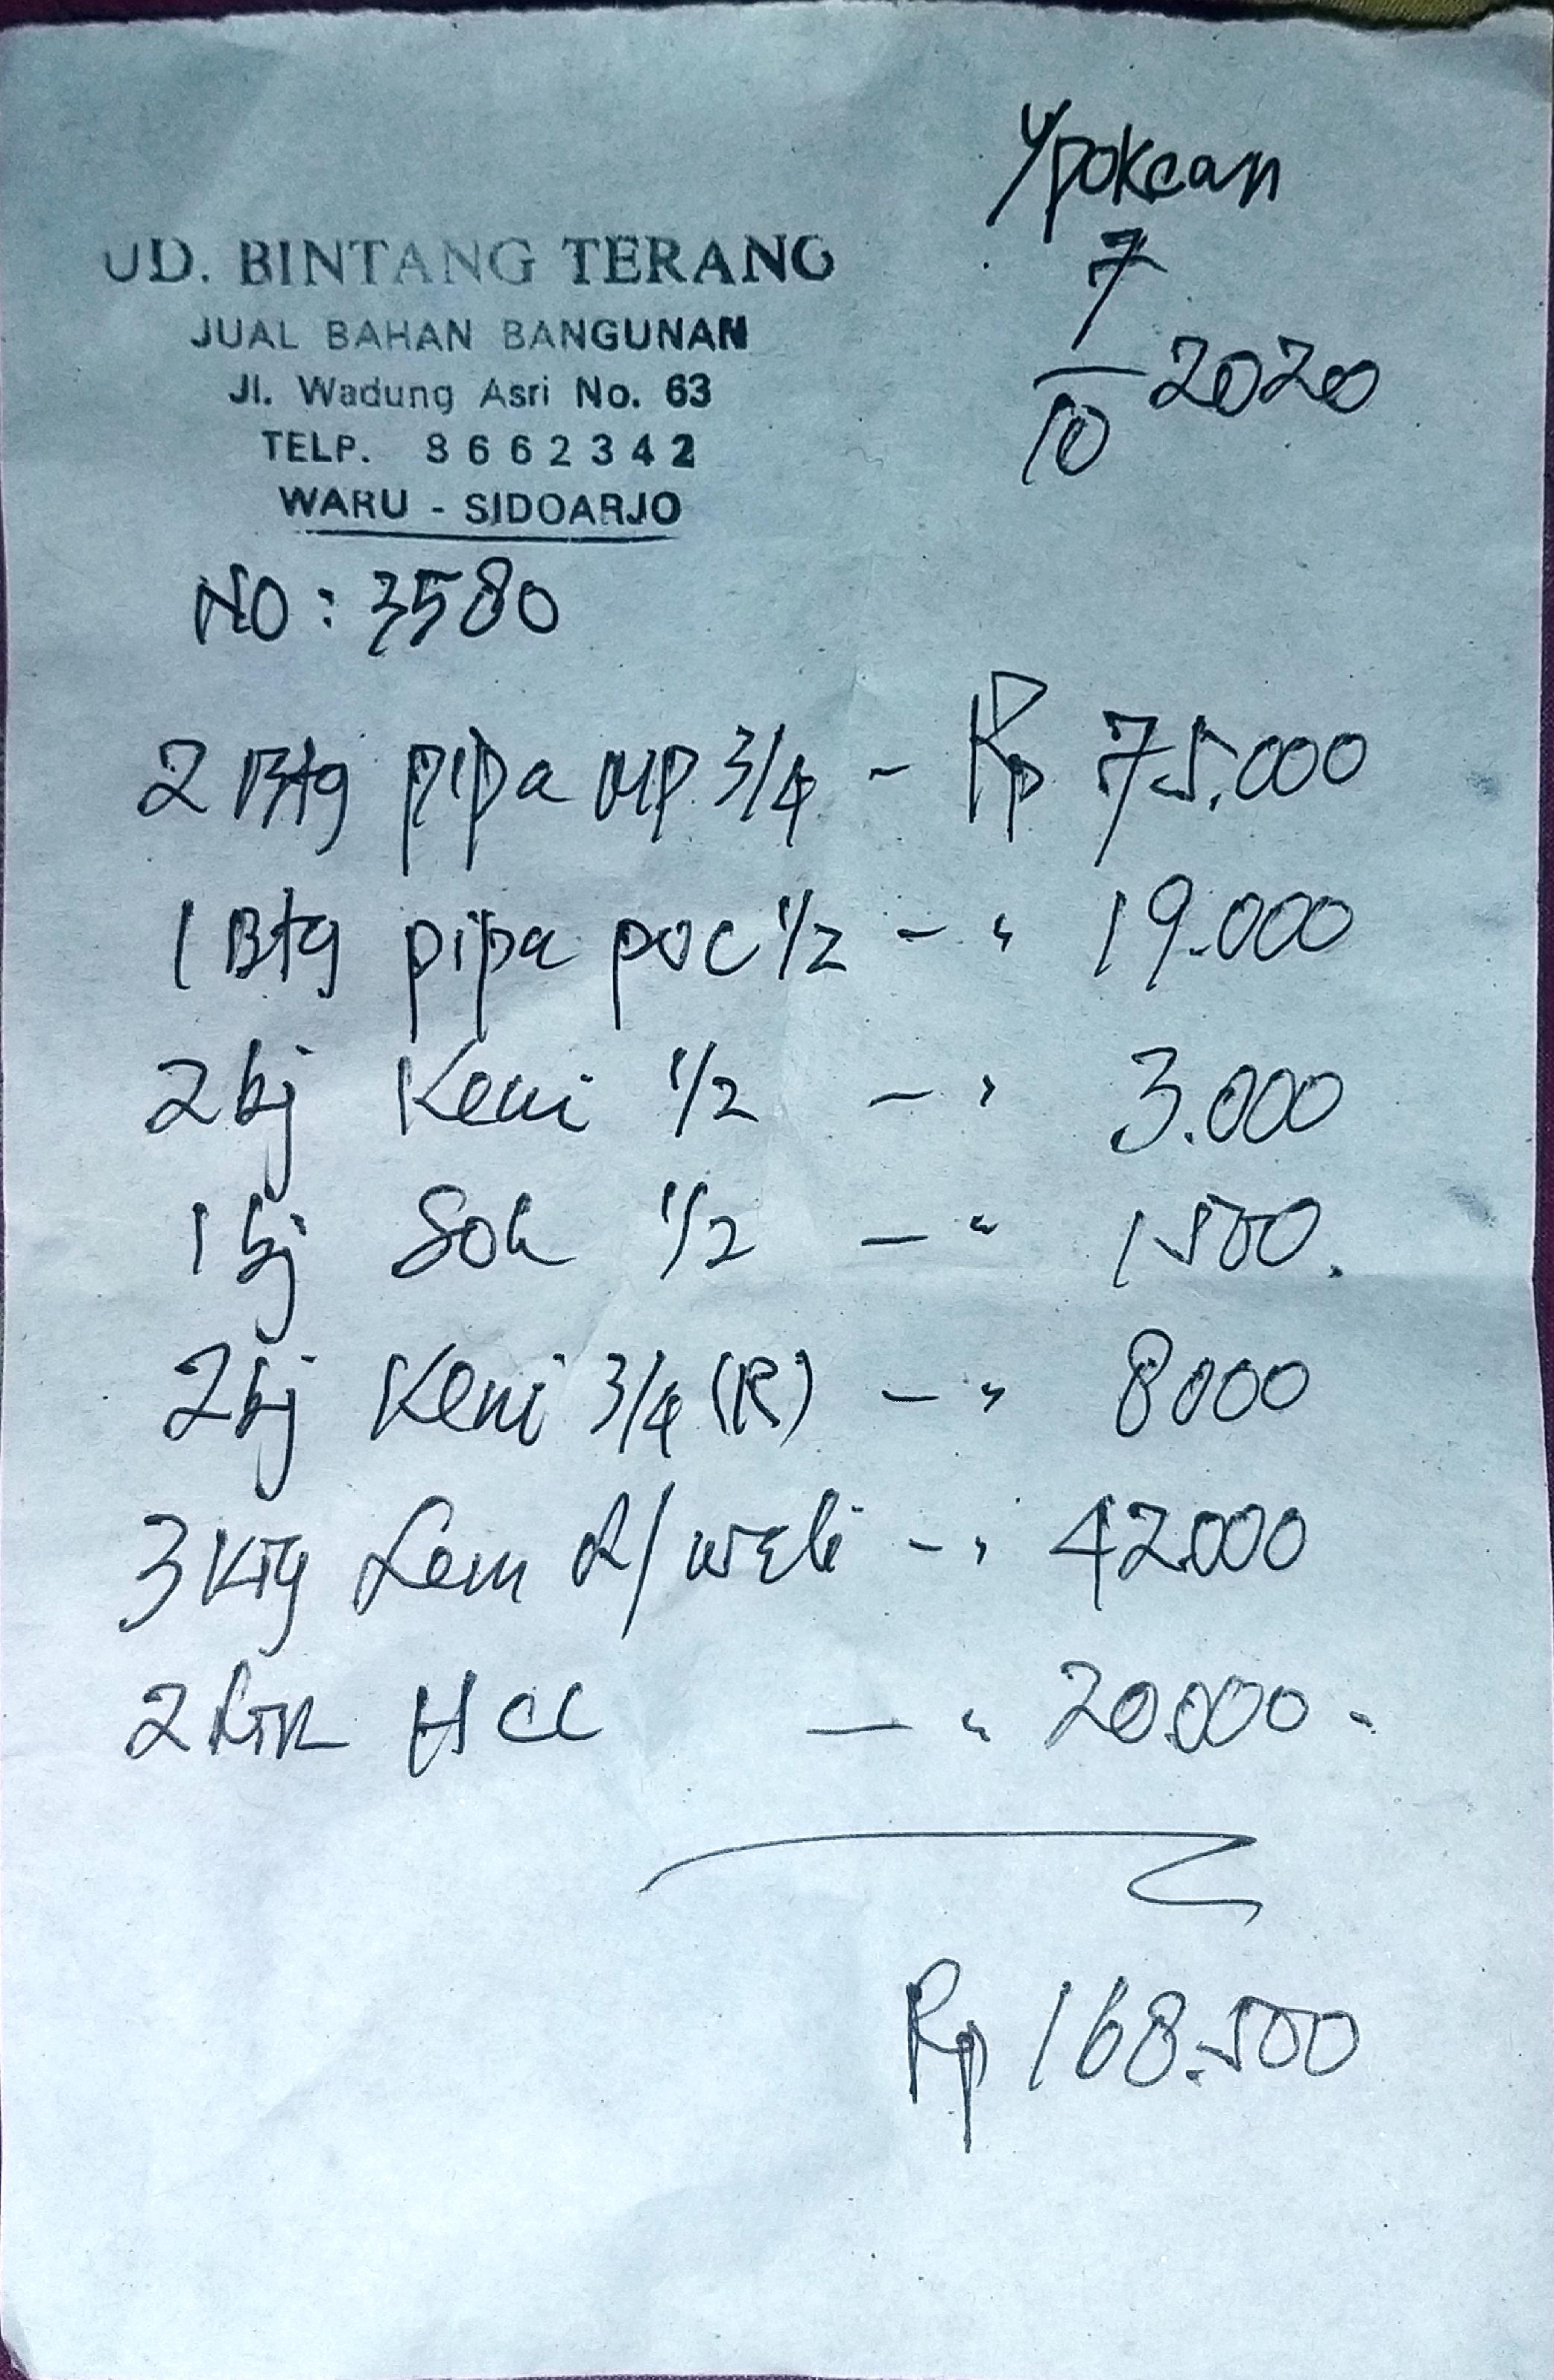 Ypokcan
7
10 2020
UD. BINTANG TERANG
JUAL BAHAN BANGUNAN
Jl. Wadung Asri No. 63
TELP. 8662342
WARU - SIDOARJO
NO: 3580
2 Btg pipa MP 3/4 - Rp 75.000
1 Btg pipa poc 1/2 - " 19.000
2 bj Keni 1/2 - " 3.000
1 bj Sok 1/2 - " 1500.
2 bj Keni 3/4 (R) - " 8000
3 Ktg Lem - " 42.000
2 Ltr HCL - " 20.000-
Rp 168.500